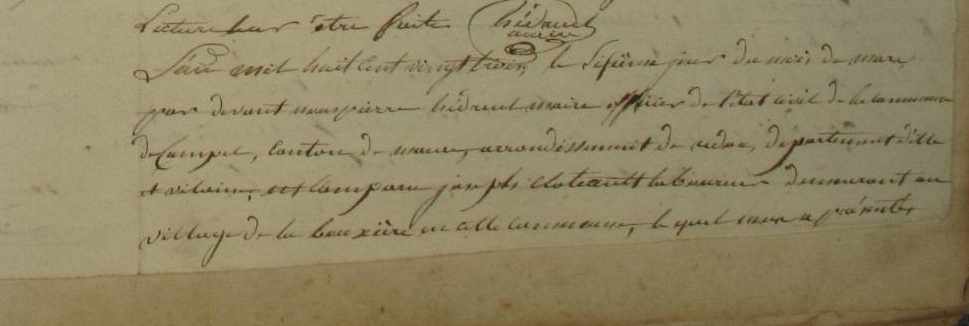 Lecture leur être faite hédauet
maire
L'an mil huit cent vingt trois, le sesiéme jour du mois de mars
par devant nous pierre hédauet maire officier de l'état civil de la commune
de Campel, canton de maure, arrondissement de redon, département d'ille
et vilaine, est comparu joseph laboureur demeurant au
village de la bouxière en cette commune, le quel nous a présenté